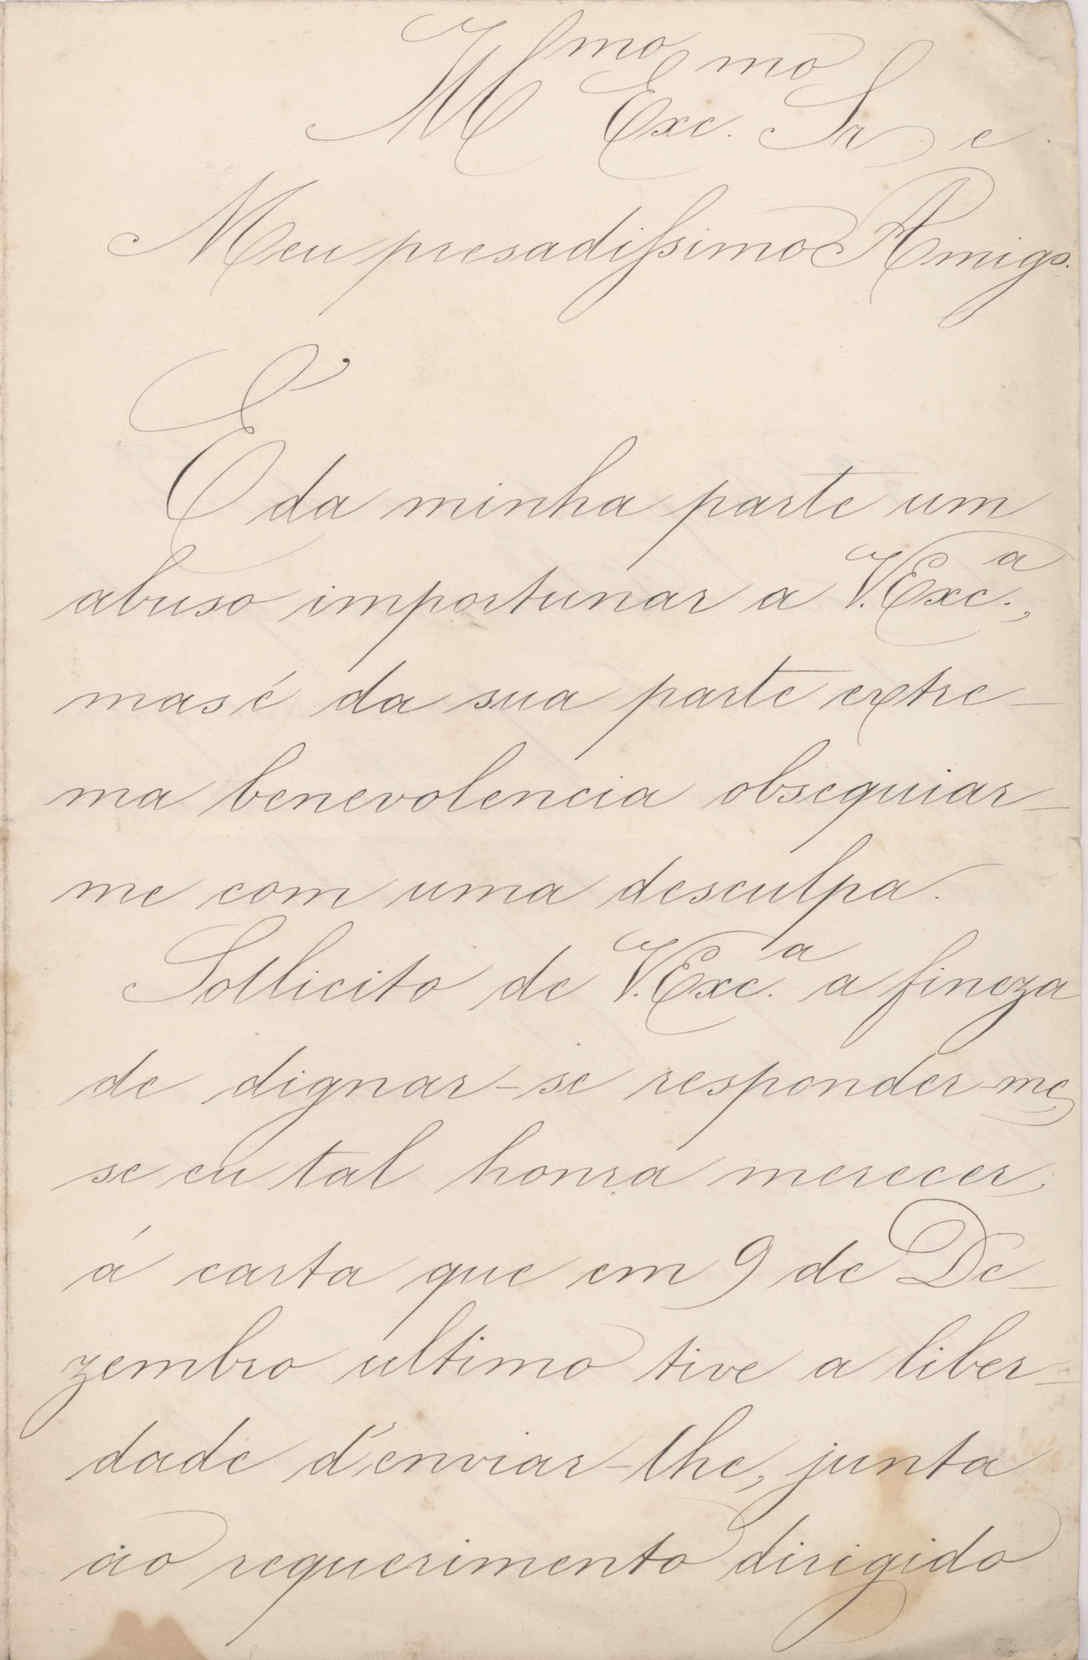 Illmo Excmo Sr e
Meu presadissimo Amigo.
É da minha parte um
abuso importunar a V. Exc.ª,
mas é da sua parte extre-
ma benevolencia obsequiar-
me com uma desculpa.
Sollicito de V. Exc.ª a fineza
de dignar-se responder-me,
se eu tal honra merecer,
á carta que em 9 de De-
zembro ultimo tive a liber-
dade d'enviar-lhe, junta
ao requerimento dirigido